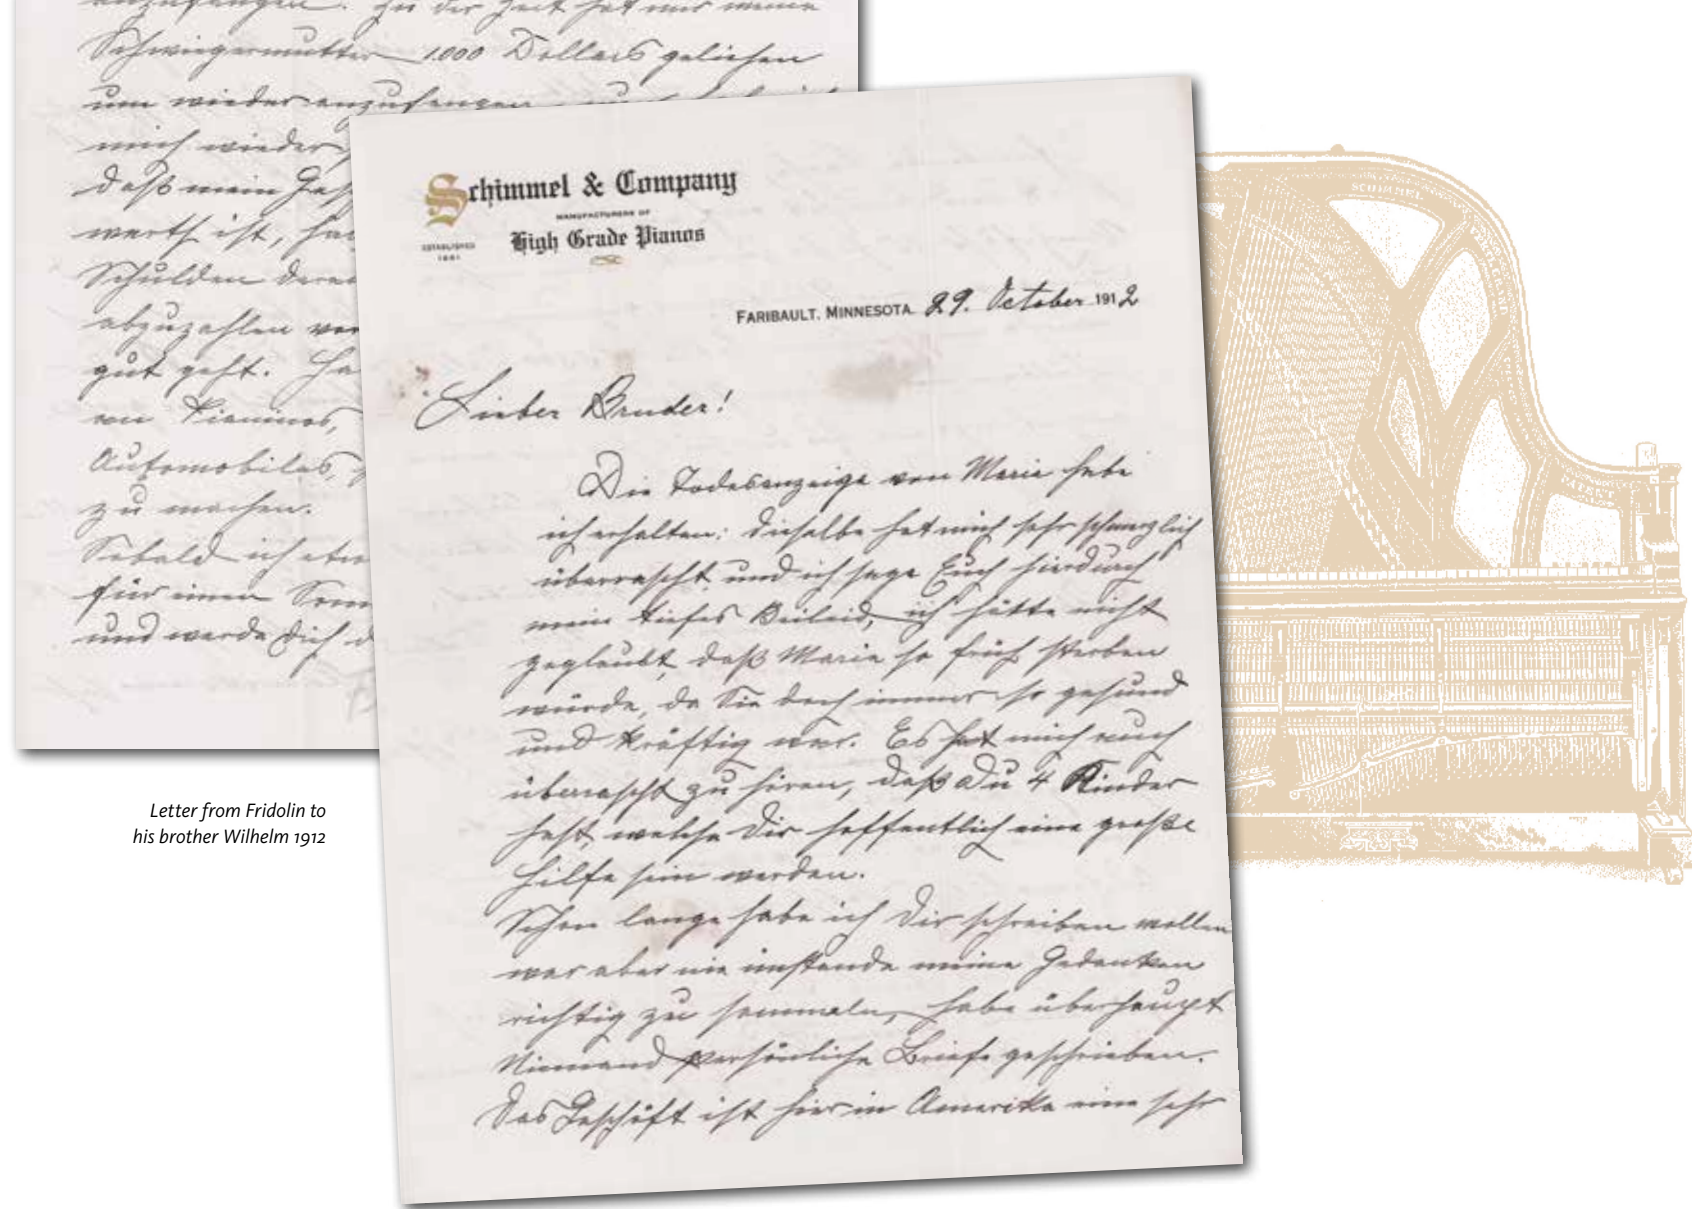 anzufangen. Zu der Zeit hat mir meine
Schwiegermutter 1.000 Dollars geliehen
um wieder anzufangen
mich wieder
daß mein Ges
werth ist, ha
Schulden
abzuzahlen
gut geht. Ha
von Pianinos,
Automobiles,
zu machen.
Sobald ich etw
für einen Som
und werde Dich d
Schimmel & Company
MANUFACTURERS OF
High Grade Pianos
ESTABLISHED
FARIBAULT, MINNESOTA. 29. October 1912
Lieber Bruder!
Die Todesanzeige von Marie habe
ich erhalten; dieselbe hat mich sehr schmerzlich
überrascht und ich sage Euch hierdurch
mein tiefes Beileid, ich hätte nicht
geglaubt, daß Marie so früh sterben
würde, da Sie doch immer so gesund
und kräftig war. Es hat mich auch
überrascht zu hören, daß Du 4 Kinder
hast, welche Dir hoffentlich eine große
Hilfe sein werden.
Schon lange habe ich Dir schreiben wollen
war aber nie imstande meine Gedanken
richtig zu sammeln, habe überhaupt
Niemand persönliche Briefe geschrieben.
Das Geschäft ist hier in Amerika eine sehr
SCHIMMEL
PATENT
Letter from Fridolin to
his brother Wilhelm 1912